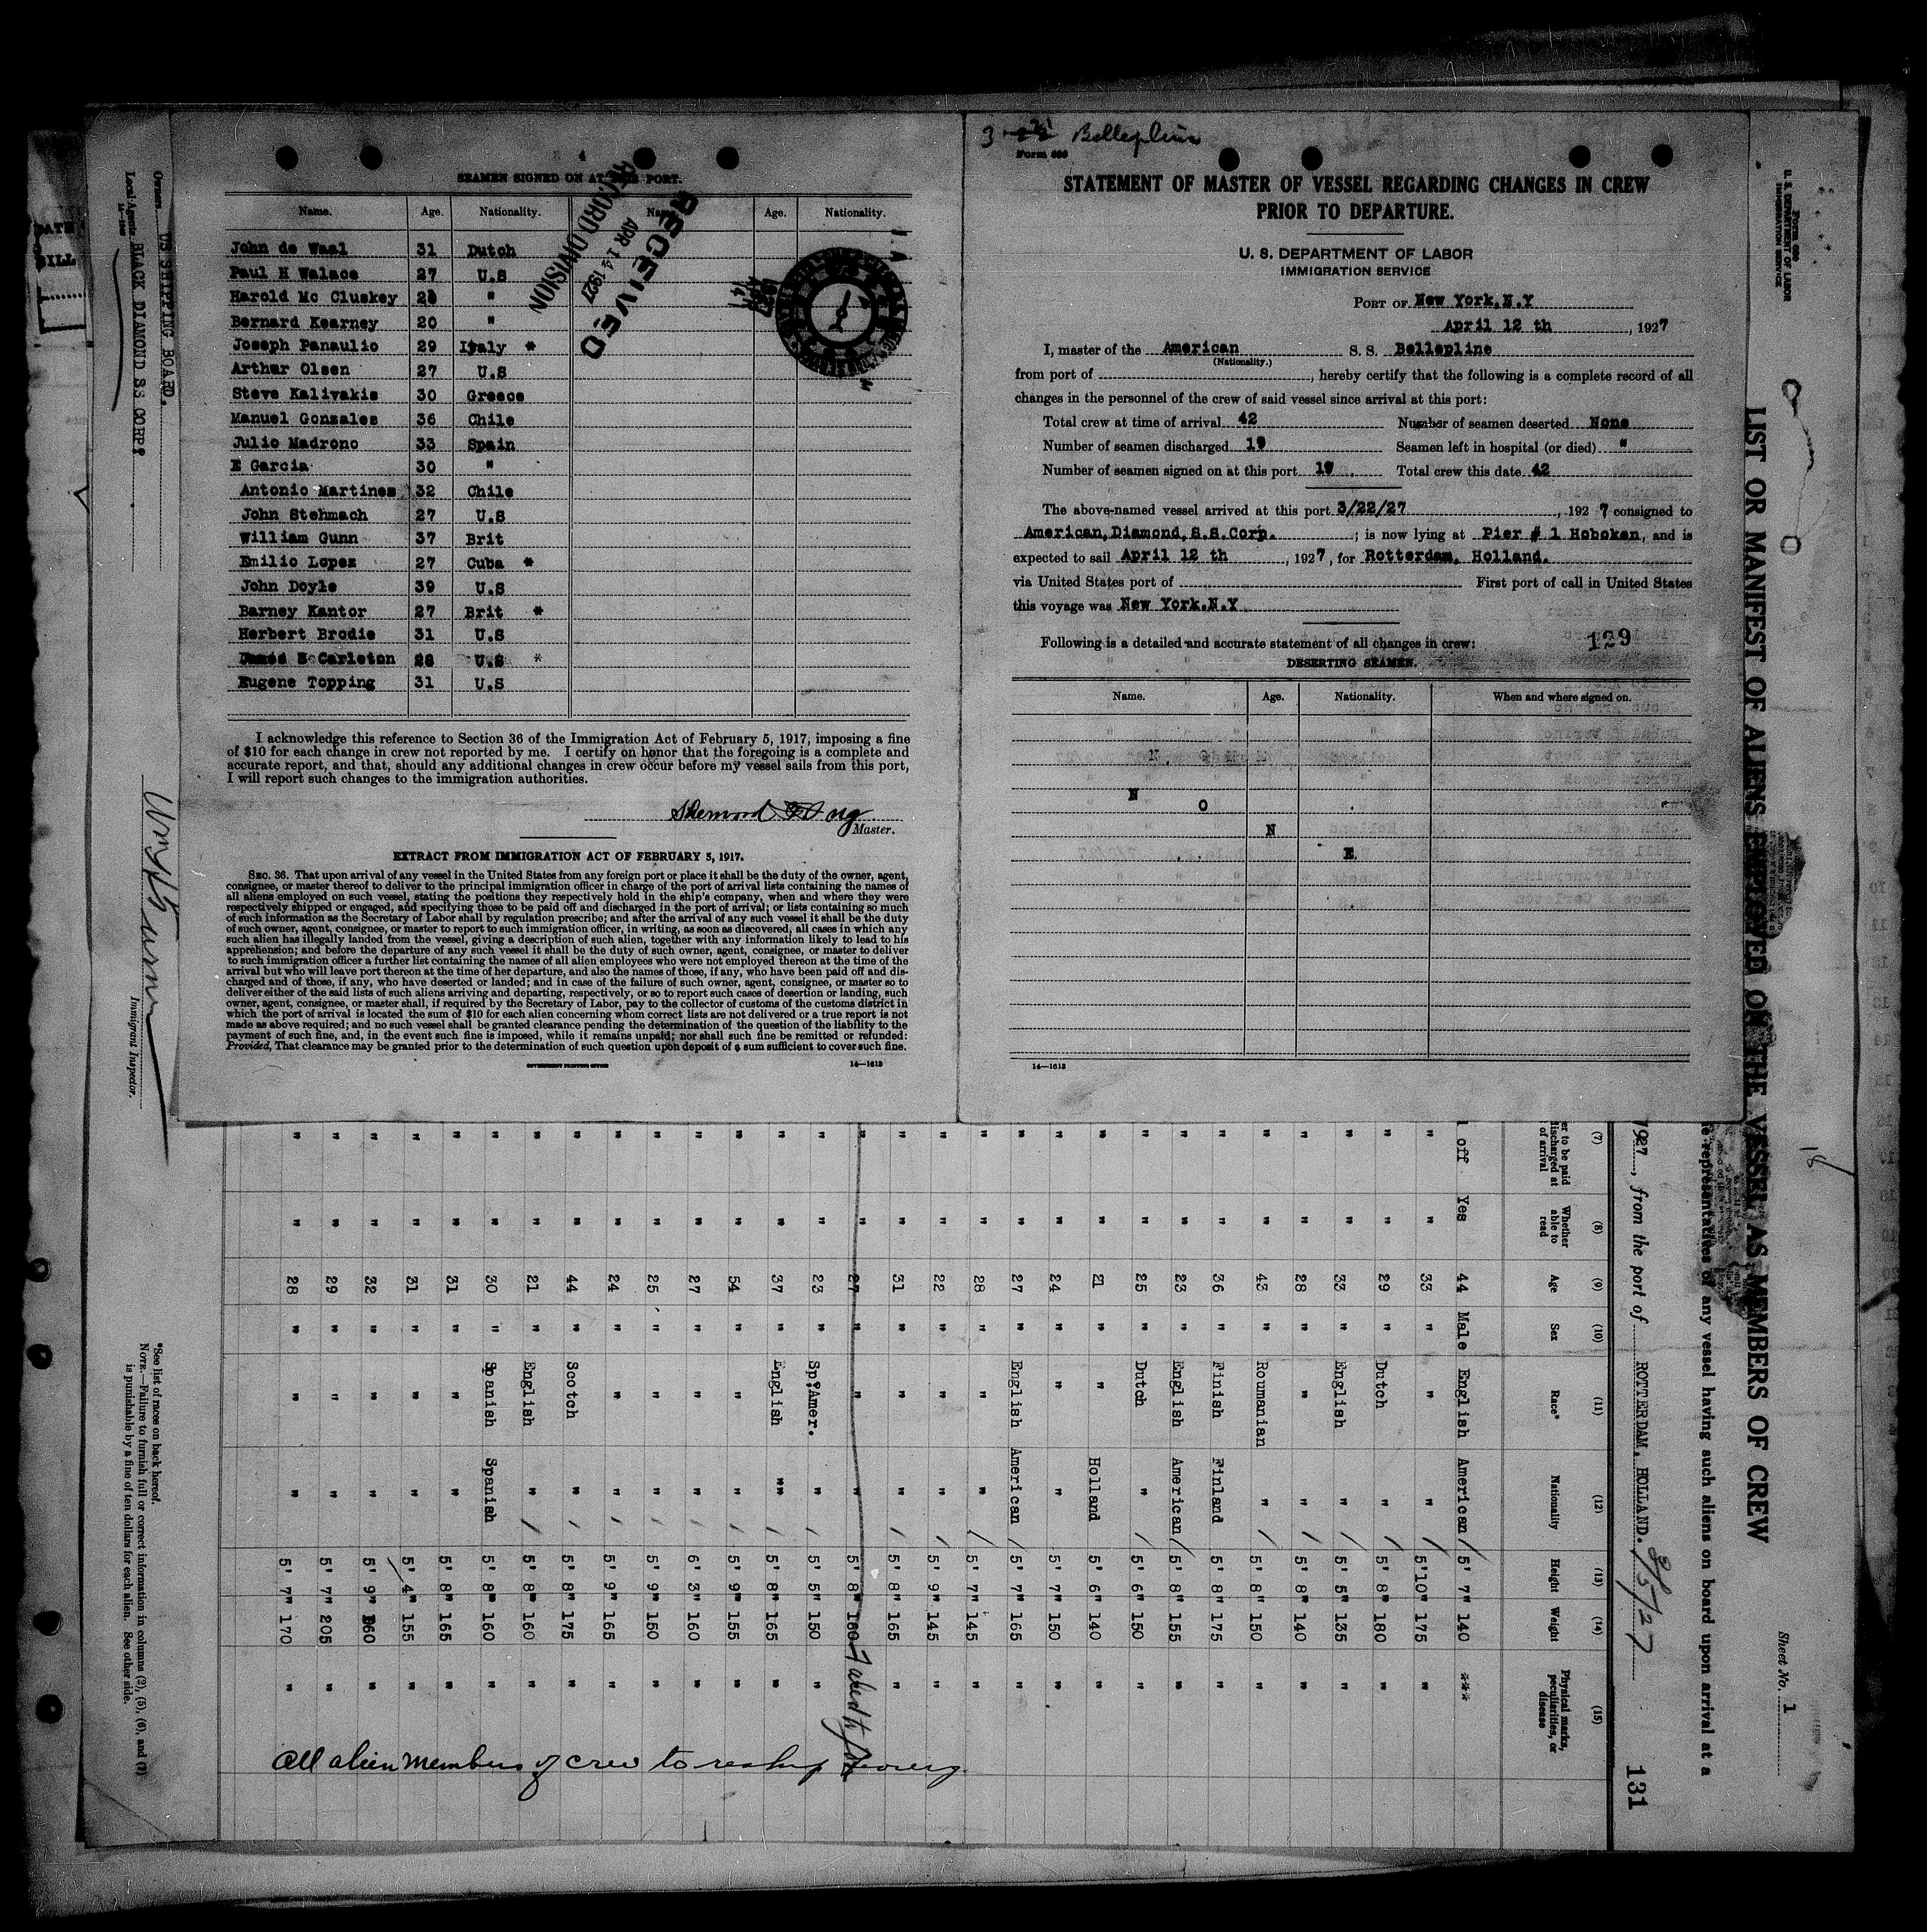 4
SEAMEN SIGNED ON AT THIS PORT.
Name. Age. Nationality. Name. Age. Nationality.
John de Waal 31 Dutch
Paul H Walace 27 U.S
Harold Mc Cluskey "
Bernard Kearney 20 "
Joseph Panaulio 29 Italy *
Arthur Olsen 27 U.S
Steve Kalivakis 30 Greece
Manuel Gonzales 36 Chile
Julio Madrono 33 Spain
E Garcia 30 "
Antonio Martines 32 Chile
John Stehmach 27 U.S
William Gunn 37 Brit
Emilio Lopez 27 Cuba *
John Doyle 39 U.S
Barney Kantor 27 Brit *
Herbert Brodie 31 U.S
Carleton 28 U.S *
Eugene Topping 31 U.S
RECEIVED
APR 14 1927
RECORD DIVISION
I acknowledge this reference to Section 36 of the Immigration Act of February 5, 1917, imposing a fine
of $10 for each change in crew not reported by me. I certify on honor that the foregoing is a complete and
accurate report, and that, should any additional changes in crew occur before my vessel sails from this port,
I will report such changes to the immigration authorities.
Master.
EXTRACT FROM IMMIGRATION ACT OF FEBRUARY 5, 1917.
SEC. 36. That upon arrival of any vessel in the United States from any foreign port or place it shall be the duty of the owner, agent,
consignee, or master thereof to deliver to the principal immigration officer in charge of the port of arrival lists containing the names of
all aliens employed on such vessel, stating the positions they respectively hold in the ship's company, when and where they were
respectively shipped or engaged, and specifying those to be paid off and discharged in the port of arrival; or lists containing so much
of such information as the Secretary of Labor shall by regulation prescribe; and after the arrival of any such vessel it shall be the duty
of such owner, agent, consignee, or master to report to such immigration officer, in writing, as soon as discovered, all cases in which any
such alien has illegally landed from the vessel, giving a description of such alien, together with any information likely to lead to his
apprehension; and before the departure of any such vessel it shall be the duty of such owner, agent, consignee, or master to deliver
to such immigration officer a further list containing the names of all alien employees who were not employed thereon at the time of the
arrival but who will leave port thereon at the time of her departure, and also the names of those, if any, who have been paid off and dis-
charged and of those, if any, who have deserted or landed; and in case of the failure of such owner, agent, consignee, or master so to
deliver either of the said lists of such aliens arriving and departing, respectively, or so to report such cases of desertion or landing, such
owner, agent, consignee, or master shall, if required by the Secretary of Labor, pay to the collector of customs of the customs district in
which the port of arrival is located the sum of $10 for each alien concerning whom correct lists are not delivered or a true report is not
made as above required; and no such vessel shall be granted clearance pending the determination of the question of the liability to the
payment of such fine, and, in the event such fine is imposed, while it remains unpaid; nor shall such fine be remitted or refunded:
Provided, That clearance may be granted prior to the determination of such question upon deposit of a sum sufficient to cover such fine.
GOVERNMENT PRINTING OFFICE 14—1613
3 Bellepline
Form 686
STATEMENT OF MASTER OF VESSEL REGARDING CHANGES IN CREW
PRIOR TO DEPARTURE.
U. S. DEPARTMENT OF LABOR
IMMIGRATION SERVICE
PORT OF New York.N.Y
April 12 th, 1927
I, master of the American S. S. Bellepline
(Nationality.)
from port of , hereby certify that the following is a complete record of all
changes in the personnel of the crew of said vessel since arrival at this port:
Total crew at time of arrival 42 Number of seamen deserted None
Number of seamen discharged 19 Seamen left in hospital (or died) "
Number of seamen signed on at this port 19 Total crew this date 42
The above-named vessel arrived at this port 3/22/27, 1927 consigned to
American,Diamond,S.S.Corp. ; is now lying at Pier # 1 Hoboken, and is
expected to sail April 12 th, 1927, for Rotterdam, Holland.
via United States port of First port of call in United States
this voyage was New York.N.Y
Following is a detailed and accurate statement of all changes in crew: 129
DESERTING SEAMEN.
Name. Age. Nationality. When and where signed on.
N
O
N
E
14—1613
LIST OR MANIFEST OF ALIENS EMPLOYED ON THE VESSEL AS MEMBERS OF CREW
Sheet No. 1
U. S. DEPARTMENT OF LABOR
IMMIGRATION SERVICE
representatives of any vessel having such aliens on board upon arrival at a
1927, from the port of ROTTERDAM, HOLLAND. 131
(7) (8) (9) (10) (11) (12) (13) (14) (15)
er to be paid discharged at of arrival Whether able to read Age Sex Race* Nationality Height Weight Physical marks, peculiarities, or disease
off Yes 44 Male English American 5' 7" 140 ***
" " 33 " " " 5'10" 175 "
" " 29 " Dutch " 5' 8" 180 "
" " 33 " English " 5' 5" 135 "
" " 28 " " " 5' 8" 140 "
" " 43 " Roumanian " 5' 8" 150 "
" " 36 " Finish Finland 5' 8" 175 "
" " 23 " English American 5' 8" 155 "
" " 25 " Dutch " 5' 6" 150 "
" " 21 " " Holland 5' 6" 140 "
" " 24 " " " 5' 7" 150 "
" " 27 " English American 5' 7" 165 "
" " 28 " " " 5' 7" 145 "
" " 22 " " " 5' 9" 145 "
" " 31 " " " 5' 8" 165 "
" " 27 " " " 5' 8" "
" " 23 " Sp.Amer. " 5' 5" 150 "
" " 37 " English " 5' 8" 165 "
" " 54 " " " 5' 9" 155 "
" " 27 " " " 6' 3" 160 "
" " 25 " " " 5' 9" 150 "
" " 24 " " " 5' 9" 165 "
" " 44 " Scotch " 5' 8" 175 "
" " 21 " English " 5' 8" 160 "
" " 30 " Spanish Spanish 5' 8" 160 "
" " 31 " " " 5' 8" 165 "
" " 31 " " " 5' 4" 155 "
" " 32 " " " 5' 9" "
" " 29 " " " 5' 7" 205 "
" " 28 " " " 5' 7" 170 "
All alien members of crew to reship
Owners US SHIPPING BOARD.
Local Agents BLACK DIAMOND SS CORP.
Immigrant Inspector.
*See list of races on back hereof.
NOTE.—Failure to furnish full or correct information in columns (2), (5), (6), and (7)
is punishable by a fine of ten dollars for each alien. See other side.